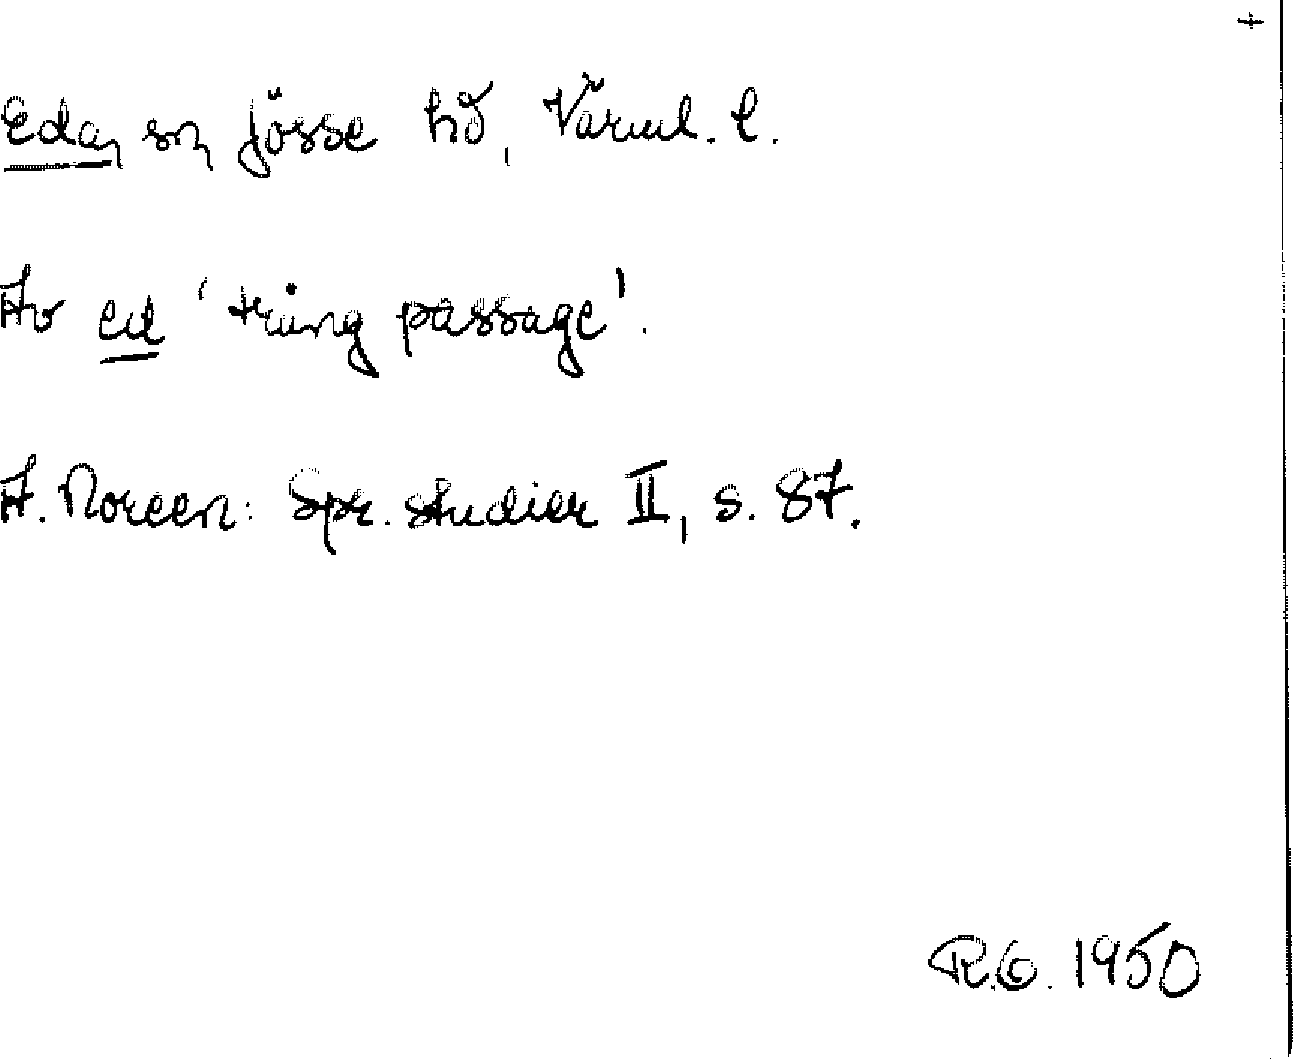 Eda, sn Jösse hd, Värml. l.
Av ed 'trång passage'.
A. Noreen: Spr. studier II, s. 87.
R.G. 1950